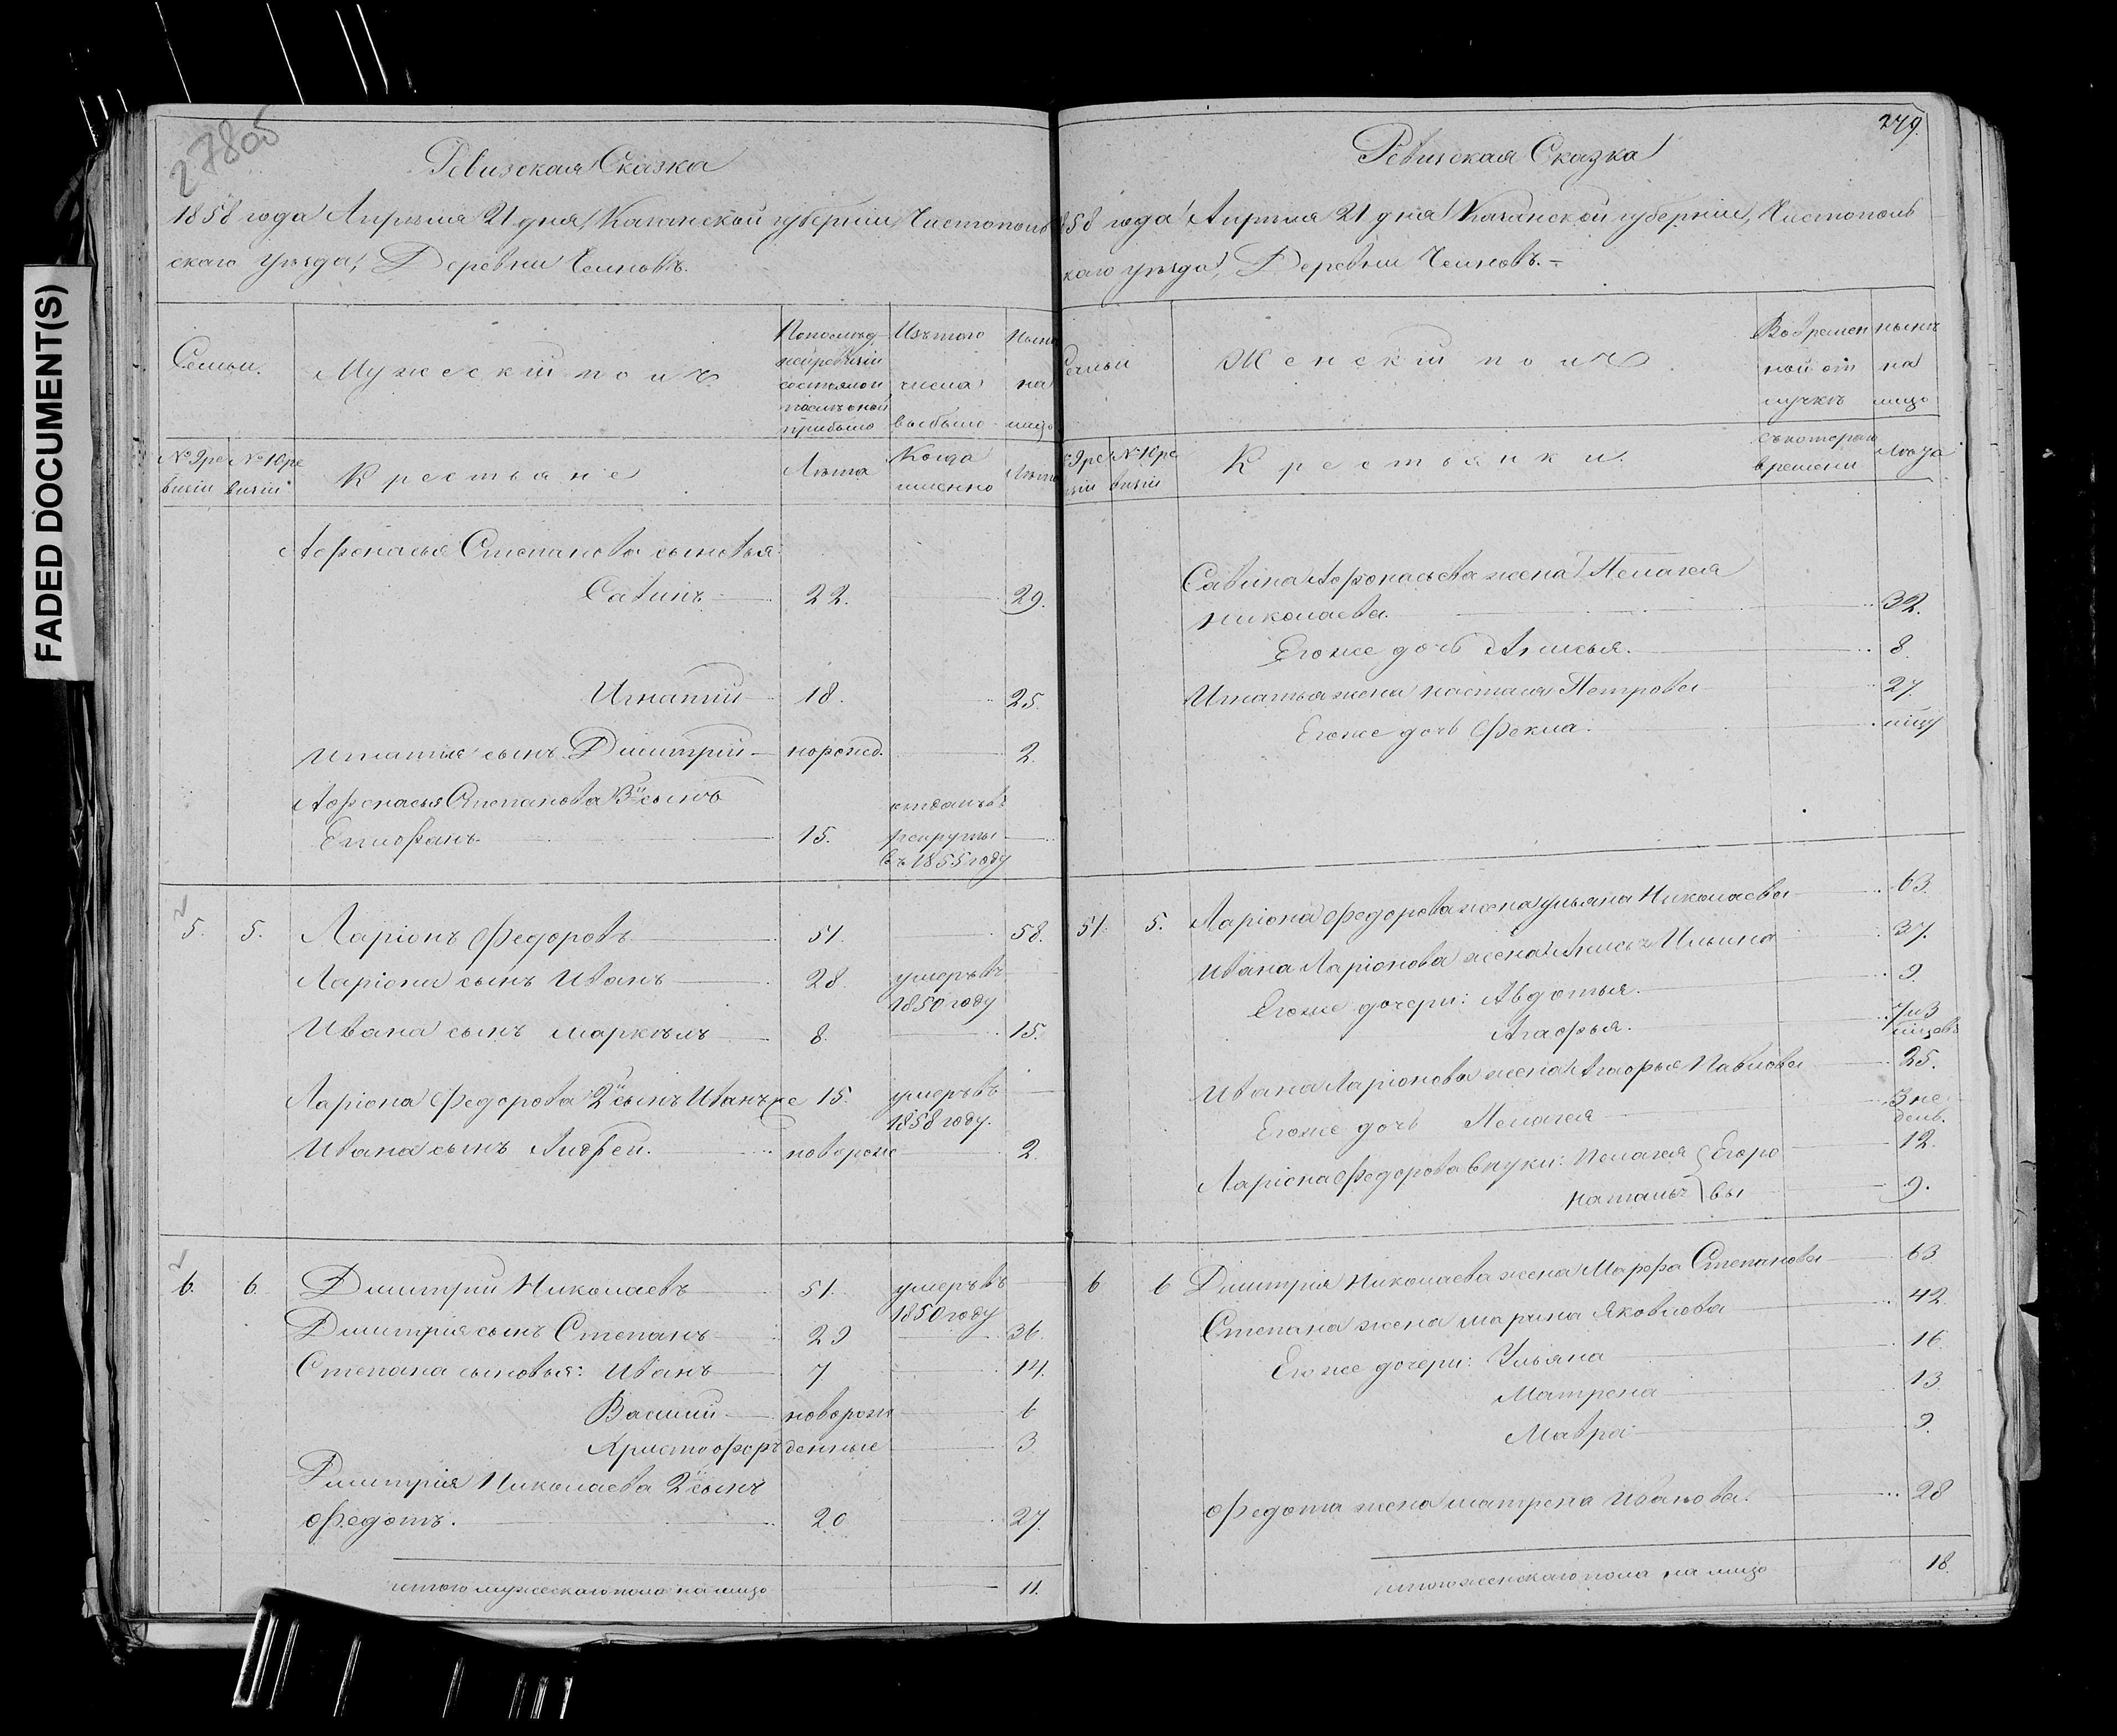 FADED DOCUMENT(S)
278об
Ревизская Сказка
1858 года Апрѣля 21 дня, Казанской губерніи, Чистополь
скаго уѣзда, Деревни
Семьи.
Мужескій полъ
По послѣд
ней ревизіи
состояло и
послѣ оной
прибыло
Изъ того
числа
выбыло
Нынѣ
на
лицо
№ 9 ре
визіи
№ 10 ре
визіи
Крестьяне
Лѣта
Когда
именно
Лѣта
Афонасья Степанова сыновья:
Савинъ 22. 29.
Игнатій 18. 25.
Игнатья сынъ Дмитрій норожд. 2
Афонасья Степанова 3й сынъ отданъ въ
Епифанъ 15. рекруты
въ 1855 году
5. 5. Ларіонъ Федоровъ 51. 58.
Ларіона сынъ Иванъ 28 умеръ въ
1850 году
Ивана сынъ Маркелъ 8. 15.
Ларіона Федорова 2й сынъ Иванъ же 15. умеръ въ
1858 году.
Ивана сынъ Андрей. новорож 2
6. 6. Дмитрій Николаевъ 51. умеръ въ
1850 году
Дмитрія сынъ Степанъ 29 36.
Степана сыновья: Иванъ 7 14.
Василій новорож 6
Христофоръ денные 3
Дмитрія Николаева 2й сынъ
Федотъ. 20 27.
Итого мужескаго пола на лицо 11.
279.
Ревизская Сказка
858 года Апрѣля 21 дня Казанской губерніи, Чистополь
каго уѣзда, Деревни
Семьи
Женскій полъ
Во времен
ной от
лучкѣ
нынѣ
на
лицо
9 ре
зіи
№ 10 ре
визіи
Крестьянки.
съ котораго
времени
Лѣта
Савина Афонасьева жена Пелагея
Николаева. 32.
Его же дочь 8
Игнатья жена Насталья Петрова 27
Его же дочь Фекла.
51. 5. Ларіона Федорова жена Ульяна Николаева 63.
Ивана Ларіонова жена Ильина 37.
Его же дочери: Авдотья. 9
Агафья. 7 и 3
мѣцовъ
Ивана Ларіонова жена Агафья Павлова 25.
Его же дочь Пелагея 3 не
дель.
Ларіона Федорова внуки: Пелагея } Егоро 12.
Наталья } вы 9.
6 6 Дмитрія Николаева жена Марфа Степанова 63
Степана жена Марина Яковлева 42
Его же дочери: Ульяна 16
Матрена 13
Мавра 9.
Федота жена Матрена Иванова. 28
Итого женскаго пола на лицо 18.